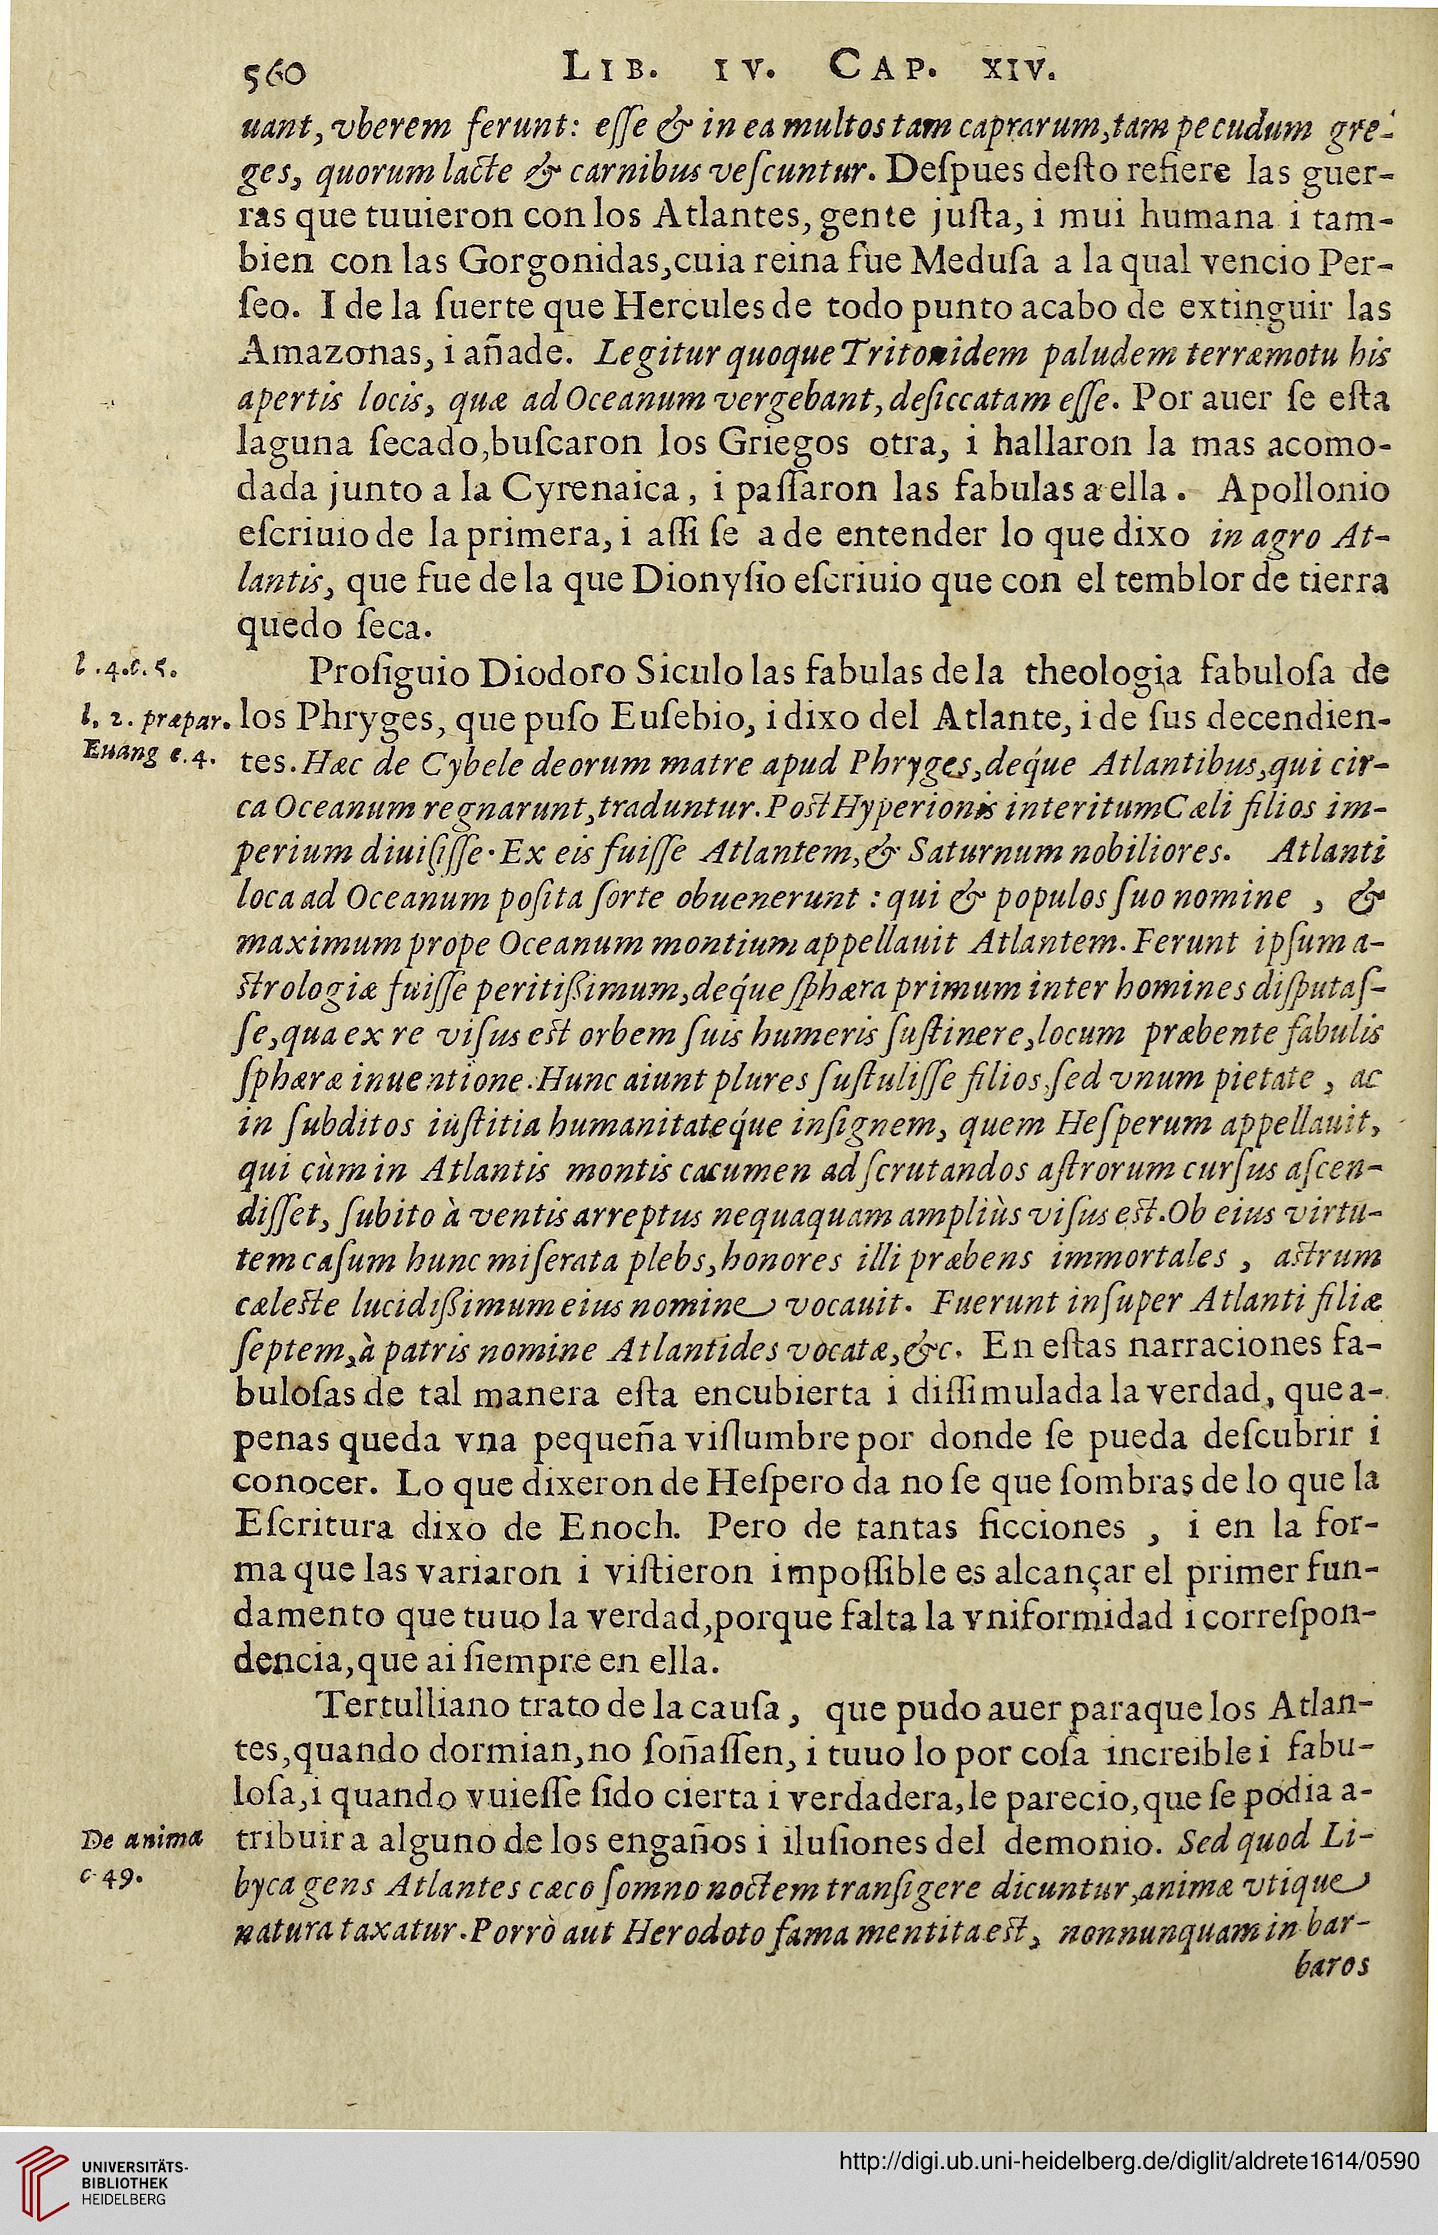 560 LIB. IV. CAP. XIV.
uant, vberem ferunt: eſſe & in ea multos tam caprarum, tam pecudum gre-
ges, quorum lacte & carnibus veſcuntur. Deſpues deſto refiere las guer-
ras que tuuieron con los Atlantes, gente juſta, i mui humana i tam-
bien con las Gorgonidas, cuia reina fue Meduſa a la qual vencio Per-
ſeo. I de la ſuerte que Hercules de todo punto acabo de extinguir las
Amazonas, i añade. Legitur quoque Tritonidem paludem terræmotu his
apertis locis, quæ ad Oceanum vergebant, deſiccatam eſſe. Por auer ſe eſta
laguna ſecado, buſcaron los Griegos otra, i hallaron la mas acomo-
dada junto a la Cyrenaica, i paſſaron las fabulas a ella. Apollonio
eſcriuio de la primera, i aſſi ſe a de entender lo que dixo in agro At-
lantis, que fue de la que Dionyſio eſcriuio que con el temblor de tierra
quedo ſeca.
l.4.c.5. Proſiguio Diodoro Siculo las fabulas de la theologia fabuloſa de
l. 2. præpar. los Phryges, que puſo Euſebio, i dixo del Atlante, i de ſus decendien-
Euang c.4. tes. Hæc de Cybele deorum matre apud Phryges, deq́ue Atlantibus, qui cir-
ca Oceanum regnarunt, traduntur. Poſt Hyperionis interitum Cæli filios im-
perium diuiſiſſe. Ex eis fuiſſe Atlantem, & Saturnum nobiliores. Atlanti
loca ad Oceanum poſita ſorte obuenerunt : qui & populos ſuo nomine , &
maximum prope Oceanum montium appellauit Atlantem. Ferunt ipſum a-
ſtrologiæ fuiſſe peritißimum, deq́ue ſphæra primum inter homines diſputaſ-
ſe, qua ex re viſus eſt orbem ſuis humeris ſuſtinere, locum præbente fabulis
ſphæræ inuentione. Hunc aiunt plures ſuſtuliſſe filios, ſed vnum pietate , ac
in ſubditos iuſtitia humanitateq́ue inſignem, quem Heſperum appellauit,
qui cùm in Atlantis montis cacumen ad ſcrutandos aſtrorum curſus aſcen-
diſſet, ſubito à ventis arreptus nequaquam ampliùs viſus eſt. Ob eius virtu-
tem caſum hunc miſerata plebs, honores illi præbens immortales , aſtrum
cæleſte lucidißimum eius nomine vocauit. Fuerunt inſuper Atlanti filiæ
ſeptem, à patris nomine Atlantides vocatæ, &c. En eſtas narraciones fa-
buloſas de tal manera eſta encubierta i diſſimulada la verdad, que a-
penas queda vna pequeña viſlumbre por donde ſe pueda deſcubrir i
conocer. Lo que dixeron de Heſpero da no ſe que ſombras de lo que la
Eſcritura dixo de Enoch. Pero de tantas ficciones , i en la for-
ma que las variaron i viſtieron impoſſible es alcançar el primer fun-
damento que tuuo la verdad, porque falta la vniformidad i correſpon-
dencia, que ai ſiempre en ella.
Tertulliano trato de la cauſa , que pudo auer paraque los Atlan-
tes, quando dormian, no ſoñaſſen, i tuuo lo por coſa increible i fabu-
loſa, i quando vuieſſe ſido cierta i verdadera, le parecio, que ſe podia a-
De anima tribuir a alguno de los engaños i iluſiones del demonio. Sed quod Li-
c 49. byca gens Atlantes cæco ſomno noctem tranſigere dicuntur, animæ vtique
natura taxatur. Porrò aut Herodoto fama mentita eſt, nonnunquam in bar-
baros
UNIVERSITÄTS-
BIBLIOTHEK
HEIDELBERG
http://digi.ub.uni-heidelberg.de/diglit/aldrete1614/0590